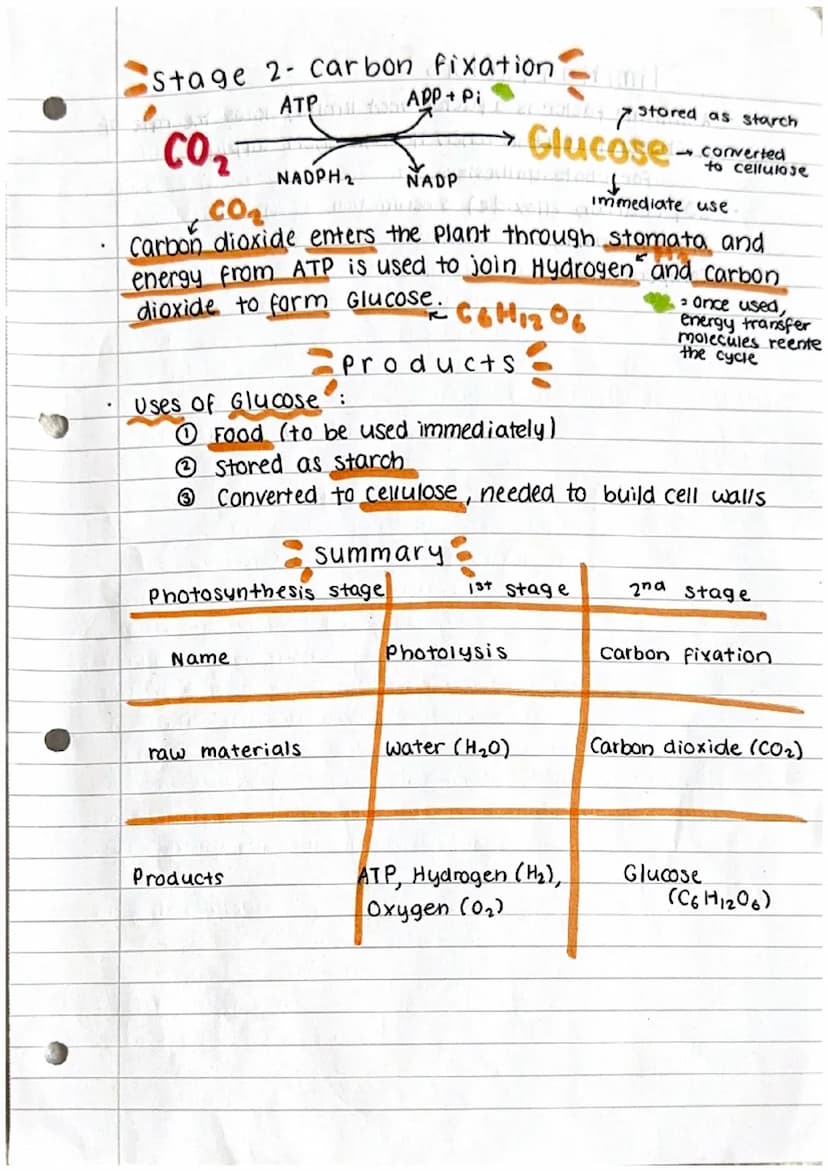 Stage 2- carbon fixation
ATP ADP + Pi
CO₂ Glucose
NADPH₂ NADP
stored as starch
converted to cellulose
immediate use
CO₂
Carbon dioxide enters the plant through stomata and
energy from ATP is used to join Hydrogen and carbon
H₂
dioxide to form Glucose. C6H12O6
= once used,
energy transfer
molecules reente
the cycle
Products
Uses of Glucose:
① Food (to be used immediately)
② stored as starch
③ Converted to cellulose, needed to build cell walls
Summary
Photosynthesis stage 1st stage 2nd stage
Name Photolysis carbon fixation
raw materials water (H₂O) Carbon dioxide (CO₂)
Products ATP, Hydrogen (H₂), Glucose
Oxygen (O₂) (C6H12O6)